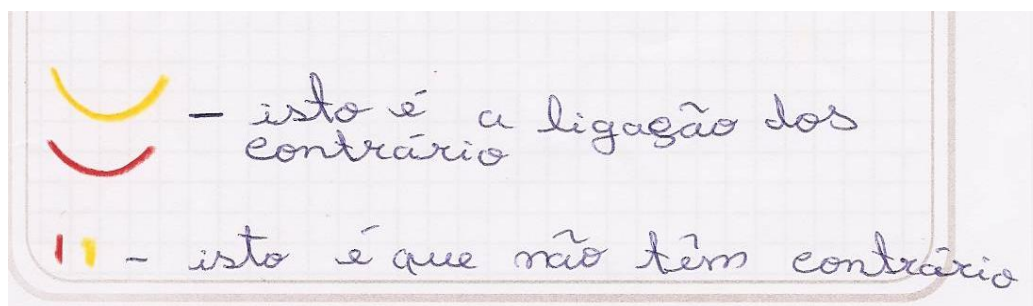 - isto é a ligação dos
contrário
- isto é que não têm contrário